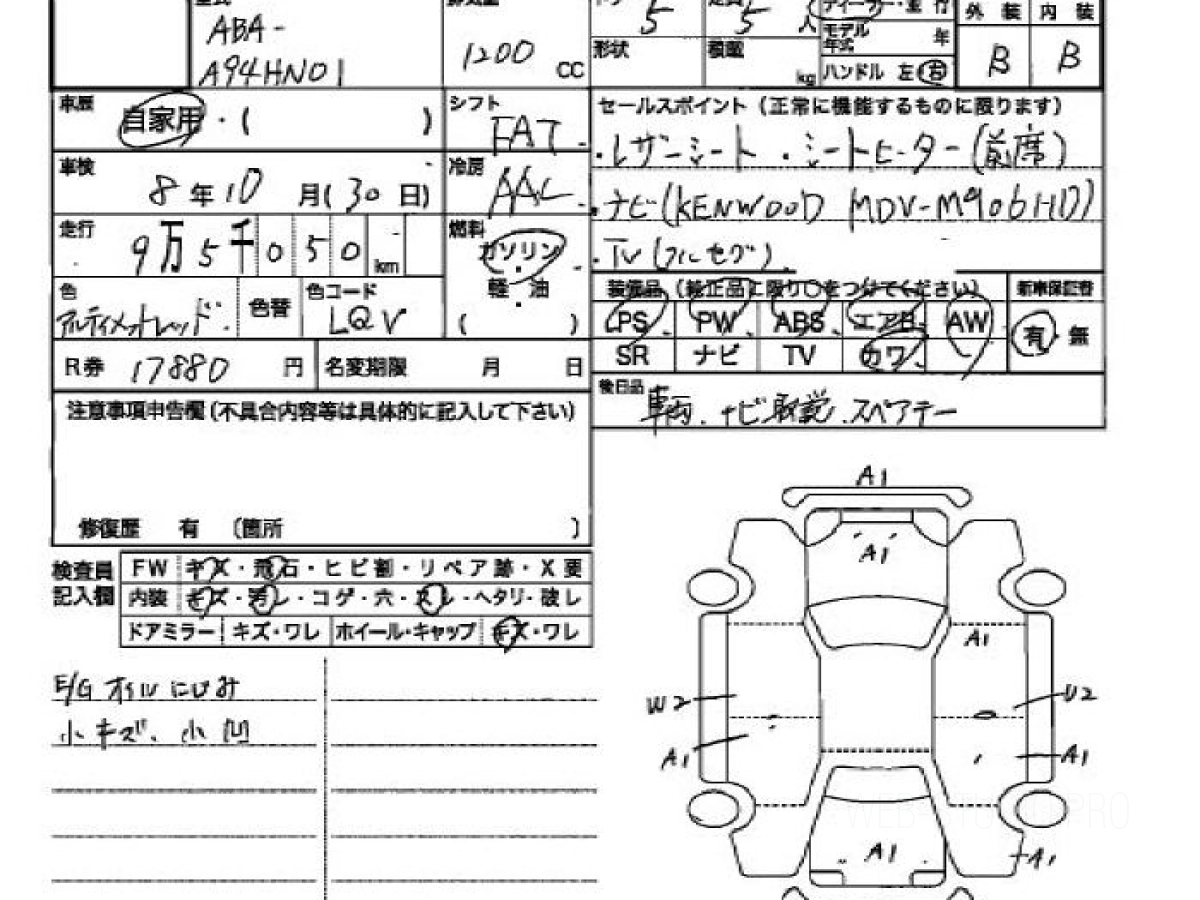 5 5 人 ディーラー・並行 外装 内装
ABA-
A94HN01
1200 CC
形状 積載 kg
モデル年式 年
ハンドル 左 右
B B
車歴 自家用・( )
シフト FAT
車検 8年10月(30日)
冷房 AAC
走行 9万5千050km
燃料 ガソリン・軽・油 ( )
色 アルティメットレッド 色替 色コード LQV
R券 17880 円 名変期限 月 日
セールスポイント(正常に機能するものに限ります)
・レザーシート ・シートヒーター(前席)
・ナビ(KENWOOD MDV-M906HD)
・TV(フルセグ)
装備品(純正品に限り○をつけてください) 新車保証書
PS PW ABS エアB AW 有・無
SR ナビ TV カワ
後日品 車両、ナビ取説、スペアキー
注意事項申告欄(不具合内容等は具体的に記入して下さい)
修復歴 有 〔箇所 〕
検査員記入欄
FW キズ・飛石・ヒビ割・リペア跡・X要
内装 キズ・汚レ・コゲ・穴・スレ・ヘタリ・破レ
ドアミラー キズ・ワレ ホイール・キャップ キズ・ワレ
E/G オイルにじみ
小キズ、小凹
A1
A1
A1
W2 U2
A1 A1
A1 A1